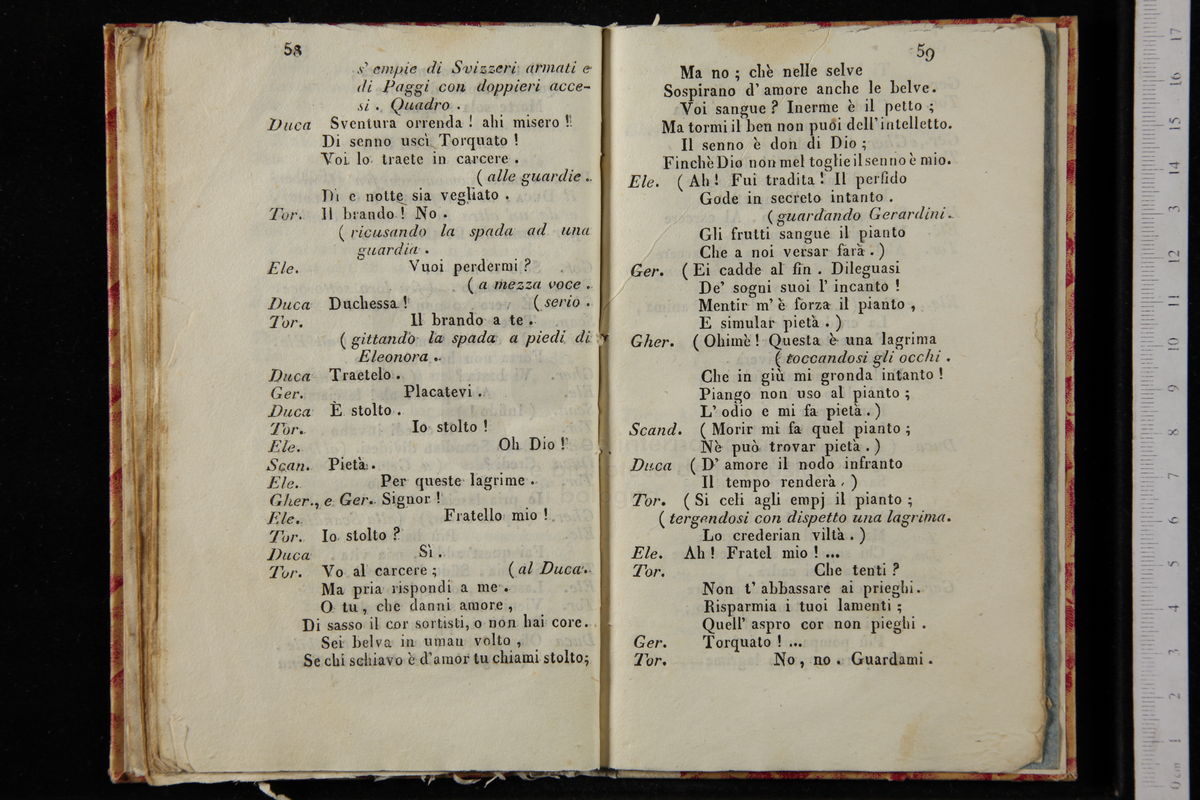 58
s' empie di Svizzeri armati e
di Paggi con doppieri acce-
si . Quadro .
Duca Sventura orrenda ! ahi misero !!
Di senno uscì Torquato !
Voi lo traete in carcere .
( alle guardie .
Dì e notte sia vegliato .
Tor. Il brando ! No .
( ricusando la spada ad una
guardia .
Ele. Vuoi perdermi ?
( a mezza voce .
Duca Duchessa ! ( serio .
Tor. Il brando a te .
( gittando la spada a piedi di
Eleonora .
Duca Traetelo .
Ger. Placatevi .
Duca È stolto .
Tor. Io stolto !
Ele. Oh Dio !
Scan. Pietà .
Ele. Per queste lagrime .
Gher., e Ger. Signor !
Ele. Fratello mio !
Tor. Io stolto ?
Duca Sì .
Tor. Vo al carcere ; ( al Duca .
Ma pria rispondi a me .
O tu , che danni amore ,
Di sasso il cor sortisti, o non hai core .
Sei belva in uman volto ,
Se chi schiavo è d'amor tu chiami stolto;
59
Ma no ; chè nelle selve
Sospirano d' amore anche le belve .
Voi sangue ? Inerme è il petto ;
Ma tormi il ben non puoi dell'intelletto.
Il senno è don di Dio ;
Finchè Dio non mel toglie il senno è mio.
Ele. ( Ah ! Fui tradita ! Il perfido
Gode in secreto intanto .
( guardando Gerardini .
Gli frutti sangue il pianto
Che a noi versar farà . )
Ger. ( Ei cadde al fin . Dileguasi
De' sogni suoi l' incanto !
Mentir m' è forza il pianto ,
E simular pietà . )
Gher. ( Ohimè ! Questa è una lagrima
( toccandosi gli occhi .
Che in giù mi gronda intanto !
Piango non uso al pianto ;
L' odio e mi fa pietà . )
Scand. ( Morir mi fa quel pianto ;
Nè può trovar pietà . )
Duca ( D' amore il nodo infranto
Il tempo renderà . )
Tor. ( Si celi agli empj il pianto ;
( tergendosi con dispetto una lagrima .
Lo crederian viltà . )
Ele. Ah ! Fratel mio ! ...
Tor. Che tenti ?
Non t' abbassare ai prieghi .
Risparmia i tuoi lamenti ;
Quell' aspro cor non pieghi .
Ger. Torquato ! ...
Tor. No , no . Guardami .
17
16
15
14
13
12
11
10
9
8
7
6
5
4
3
2
1
0 cm